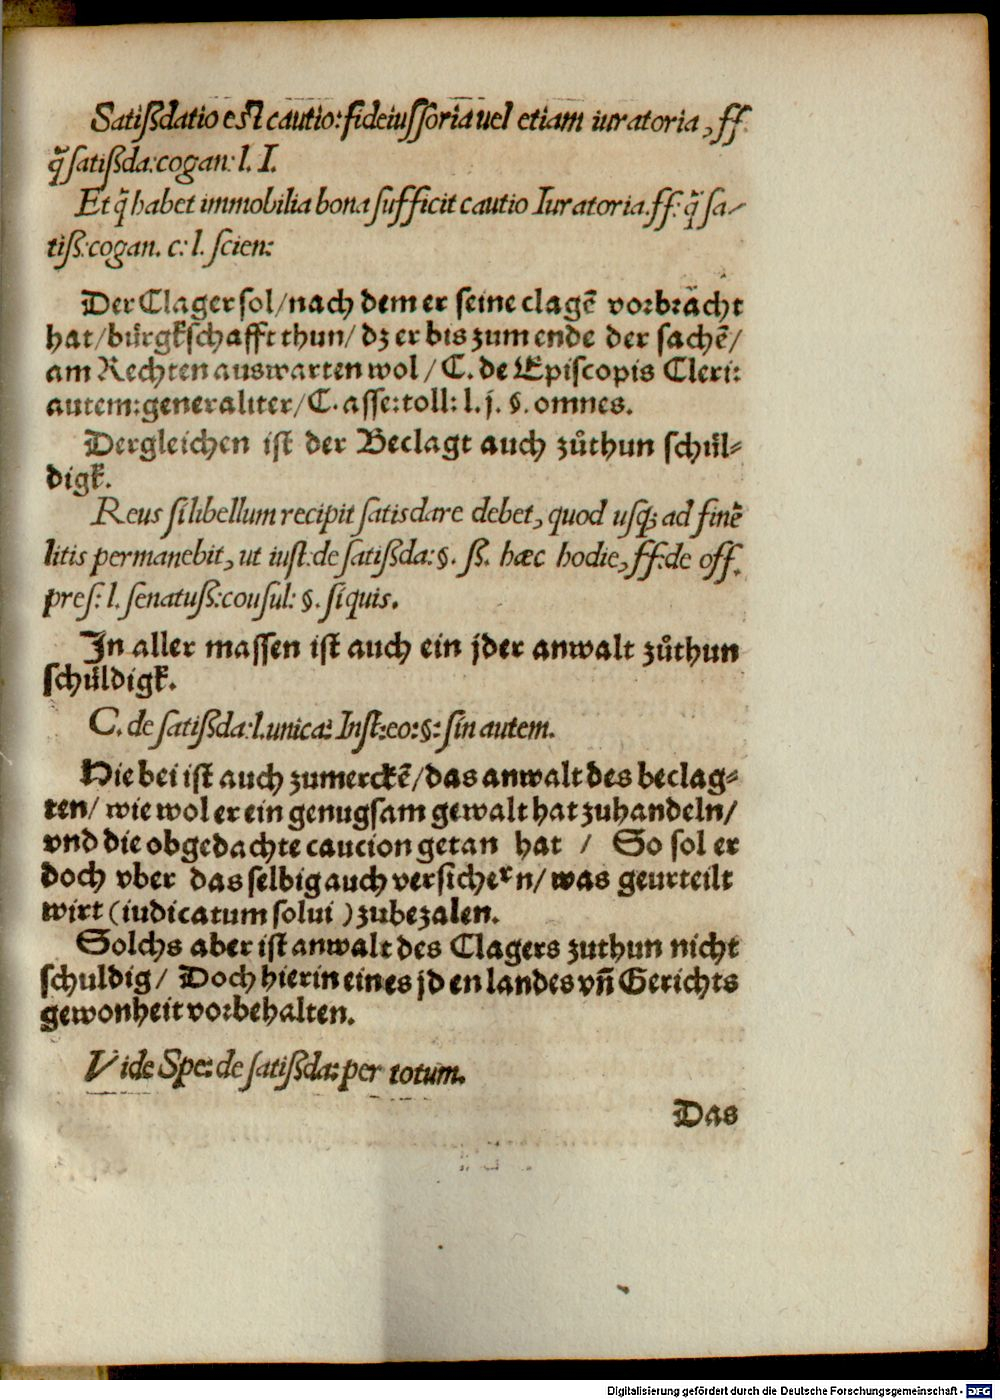 Satißdatio est cautio: fideiussoria uel etiam iuratoria, ff
q̃ satißda: cogan: l. I.
Et q̃ habet immobilia bona sufficit cautio Iuratoria. ff: q̃ sa-
tiß: cogan. c: l. scien:
Der Clager sol/ nach dem er seine clagē vorbrächt
hat/ bürgkschafft thun/ dz er bis zum ende der sachē/
am Rechten auswarten wol/ C. de Episcopis Cleri:
autem: generaliter/ C. asse: toll: l. j. §. omnes.
Dergleichen ist der Beclagt auch zůthun schůl-
digk.
Reus si libellum recipit satisdare debet, quod usq; ad finē
litis permanebit, ut iust: de satißda: §. ß. hæc hodie, ff: de off.
pres: l. senatuß: cousul: §. si quis.
In aller massen ist auch ein jder anwalt zůthun
schůldigk.
C. de satißda: l. unica: Inst: eo: §: sin autem.
Hie bei ist auch zumerckē/ das anwalt des beclag-
ten/ wie wol er ein genugsam gewalt hat zuhandeln/
vnd die obgedachte caucion getan hat / So sol er
doch vber das selbig auch versichern/ was geurteilt
wirt (iudicatum solui ) zubezalen.
Solchs aber ist anwalt des Clagers zuthun nicht
schuldig/ Doch hierin eines jden landes vn̄ Gerichts
gewonheit vorbehalten.
Vide Spe: de satißda: per totum.
Das
Digitalisierung gefördert durch die Deutsche Forschungsgemeinschaft - DFG